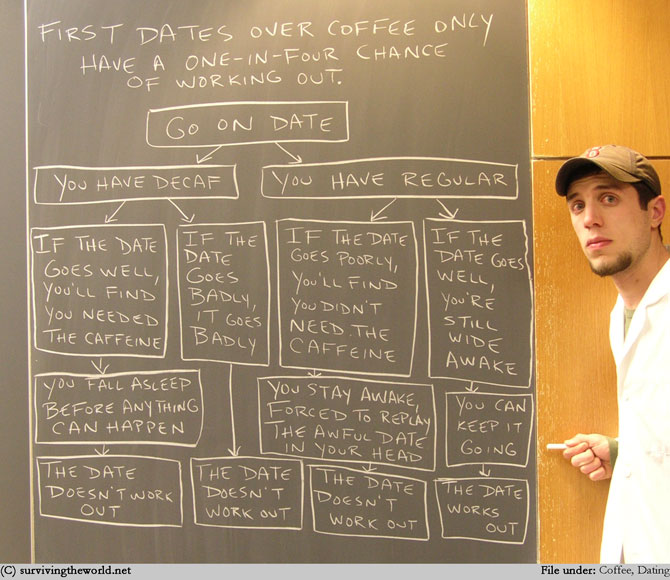 FIRST DATES OVER COFFEE ONLY
HAVE A ONE-IN-FOUR CHANCE
OF WORKING OUT.
GO ON DATE
YOU HAVE DECAF
YOU HAVE REGULAR
IF THE DATE
GOES WELL,
YOU'LL FIND
YOU NEEDED
THE CAFFEINE
IF THE
DATE
GOES
BADLY,
IT GOES
BADLY
IF THE DATE
GOES POORLY,
YOU'LL FIND
YOU DIDN'T
NEED THE
CAFFEINE
IF THE
DATE GOES
WELL,
YOU'RE
STILL
WIDE
AWAKE
YOU FALL ASLEEP
BEFORE ANYTHING
CAN HAPPEN
YOU STAY AWAKE,
FORCED TO REPLAY
THE AWFUL DATE
IN YOUR HEAD
YOU CAN
KEEP IT
GOING
THE DATE
DOESN'T WORK
OUT
THE DATE
DOESN'T
WORK OUT
THE DATE
DOESN'T
WORK OUT
THE DATE
WORKS
OUT
(C) survivingtheworld.net
File under: Coffee, Dating